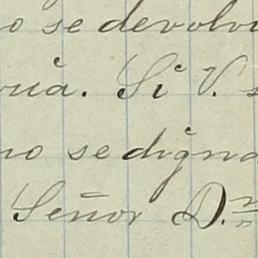 o se devolv
ria. Si V. s
no se digna
Señor D.n